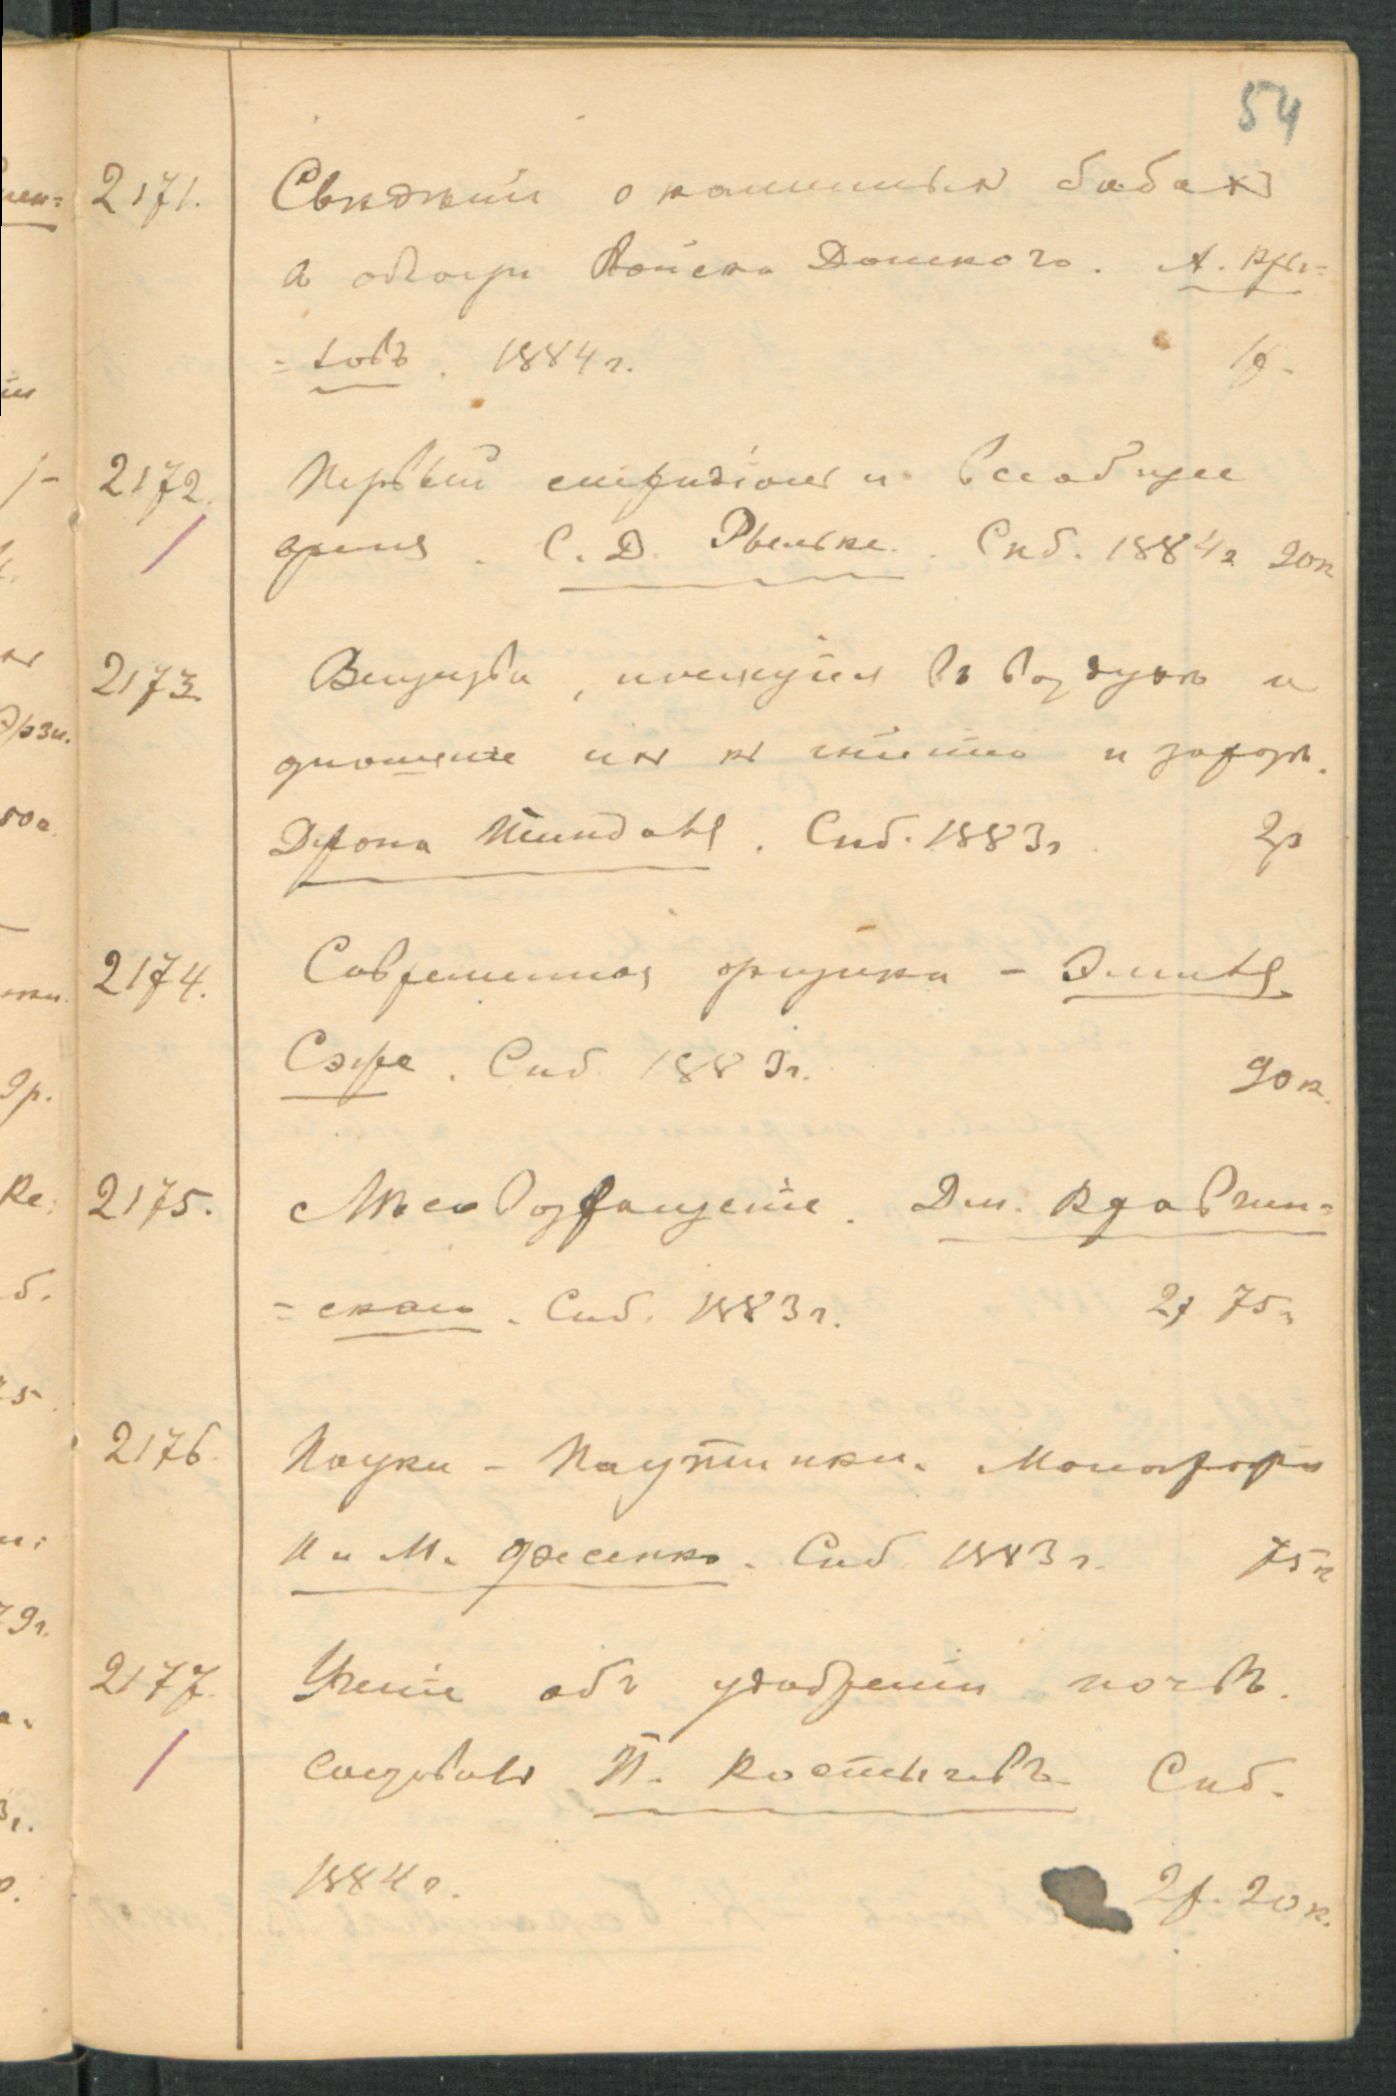 54
2171. Свѣдѣнія о каменныхъ бабахъ
в области Войска Донского. А. Кры-
=ловъ. 1884 г. 1р.
2172. Первый меридіанъ и всеобщее
время. С. Д. Рыльке. Спб. 1884 г 20к
2173. Вещества, плавающія въ воздухѣ и
отношеніе ихъ къ гніенію и заразѣ.
Джона Тиндаля. Спб. 1883 г 2р
2174. Современная физика - Эмиля
Сэрре. Спб. 1883 г. 90 к.
2175. Лѣсовозращеніе. Дм. Кравчин=
=скаго. Спб. 1883 г. 2р 75к
2176. Пауки - Паутинки. Монографія
Фесенко. Спб 1883 г. 75 к
2177. Ученіе объ удобреніи почвъ.
П. Костычевъ Спб.
1884 г. 2р. 20 к.